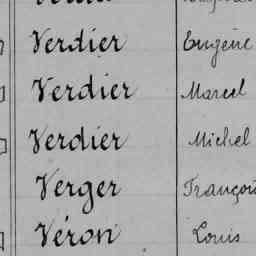 Verdier Eugène
Verdier Marcel
Verdier Michel
Verger François
Véron Louis